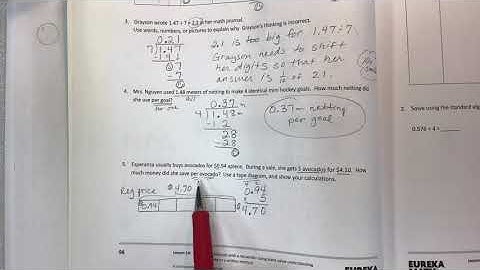 3. Grayson wrote 1.47 ÷ 7 = 2.1 in her math journal.
Use words, numbers, or pictures to explain why Grayson's thinking is incorrect.
0.21
7 1.47
2.1 is too big for 1.47 ÷ 7
Grayson needs to shift
her digits so that her
answer is 1/10 of 2.1.
4. Mrs. Nguyen used 1.48 meters of netting to make 4 identical mini hockey goals. How much netting did
she use per goal?
0.37 m
4 1.48 m
- 1 2
28
- 28
0
0.37 m netting
per goal
5. Esperanza usually buys avocados for $0.94 apiece. During a sale, she gets 5 avocados for $4.10. How
much money did she save per avocado? Use a tape diagram, and show your calculations.
Reg price
$4.70
$0.94
0.94
5
$4.70
2. Solve using the standard alg
0.576 ÷ 4 =
EUREKA
EUREKA